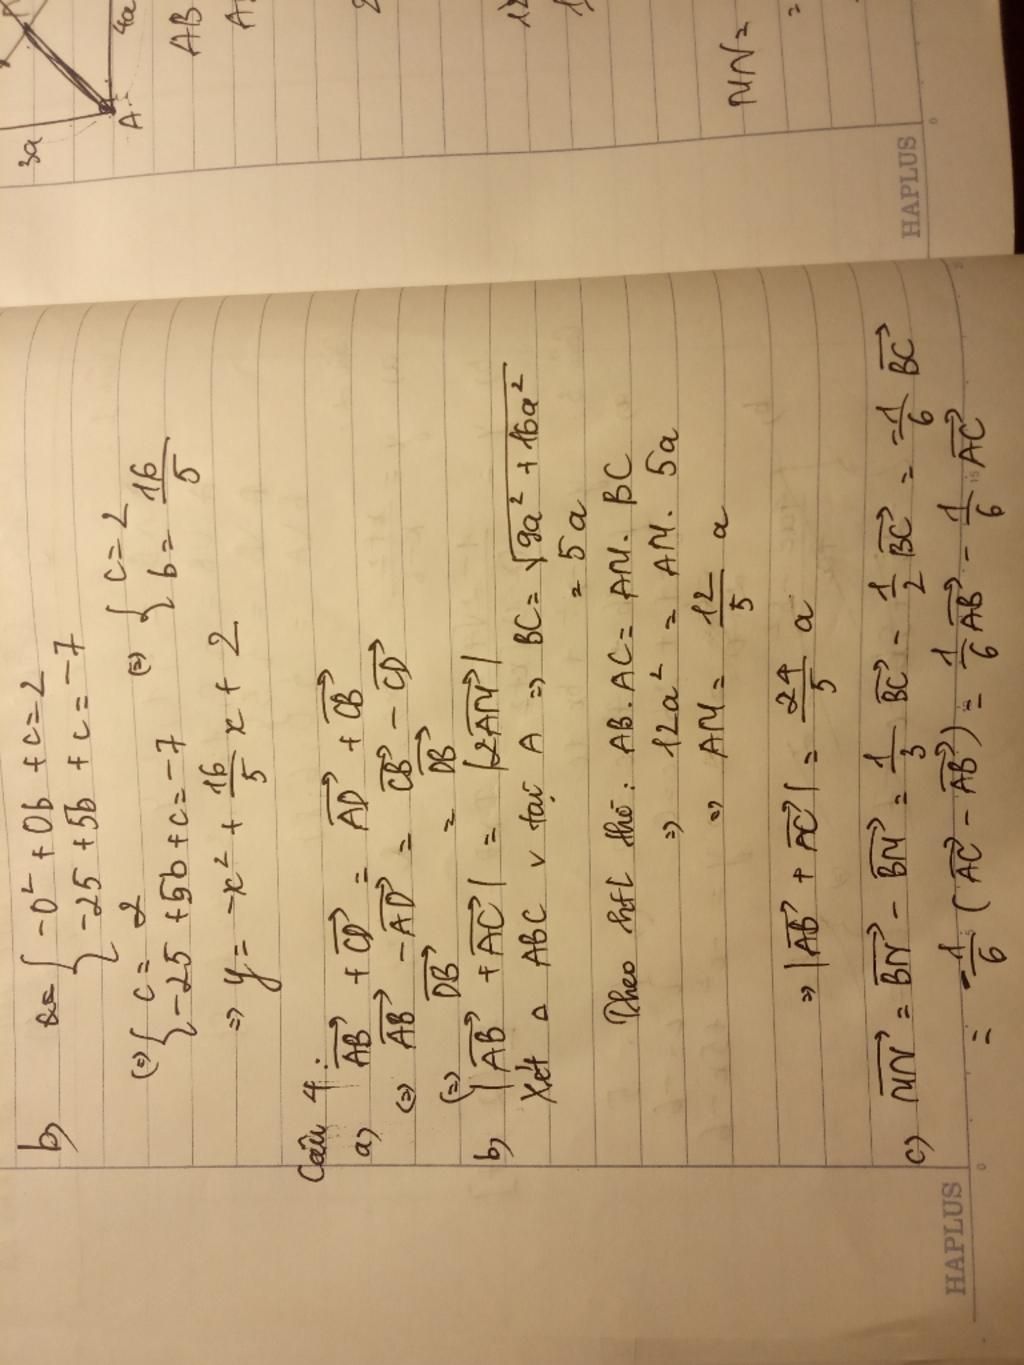 b) { -0² + 0b + c = 2
-25 + 5b + c = -7
(=) { c = 2
-25 + 5b + c = -7 (=) { c = 2
b = 16/5
=> y = -x² + 16/5 x + 2
Câu 4:
a) AB + CD = AD + CB
(=) AB - AD = CB - CD
(=) DB = DB
b) |AB + AC| = |2AM|
Xét △ ABC v tại A => BC = √9a² + 16a²
= 5a
Theo htL thì: AB.AC = AM.BC
=> 12a² = AM.5a
=> AM = 12/5 a
=> |AB + AC| = 24/5 a
c) MN = BN - BM = 1/3 BC - 1/2 BC = -1/6 BC
= -1/6 (AC - AB) = 1/6 AB - 1/6 AC
HAPLUS
3a
4a
A
AB
MN =
HAPLUS